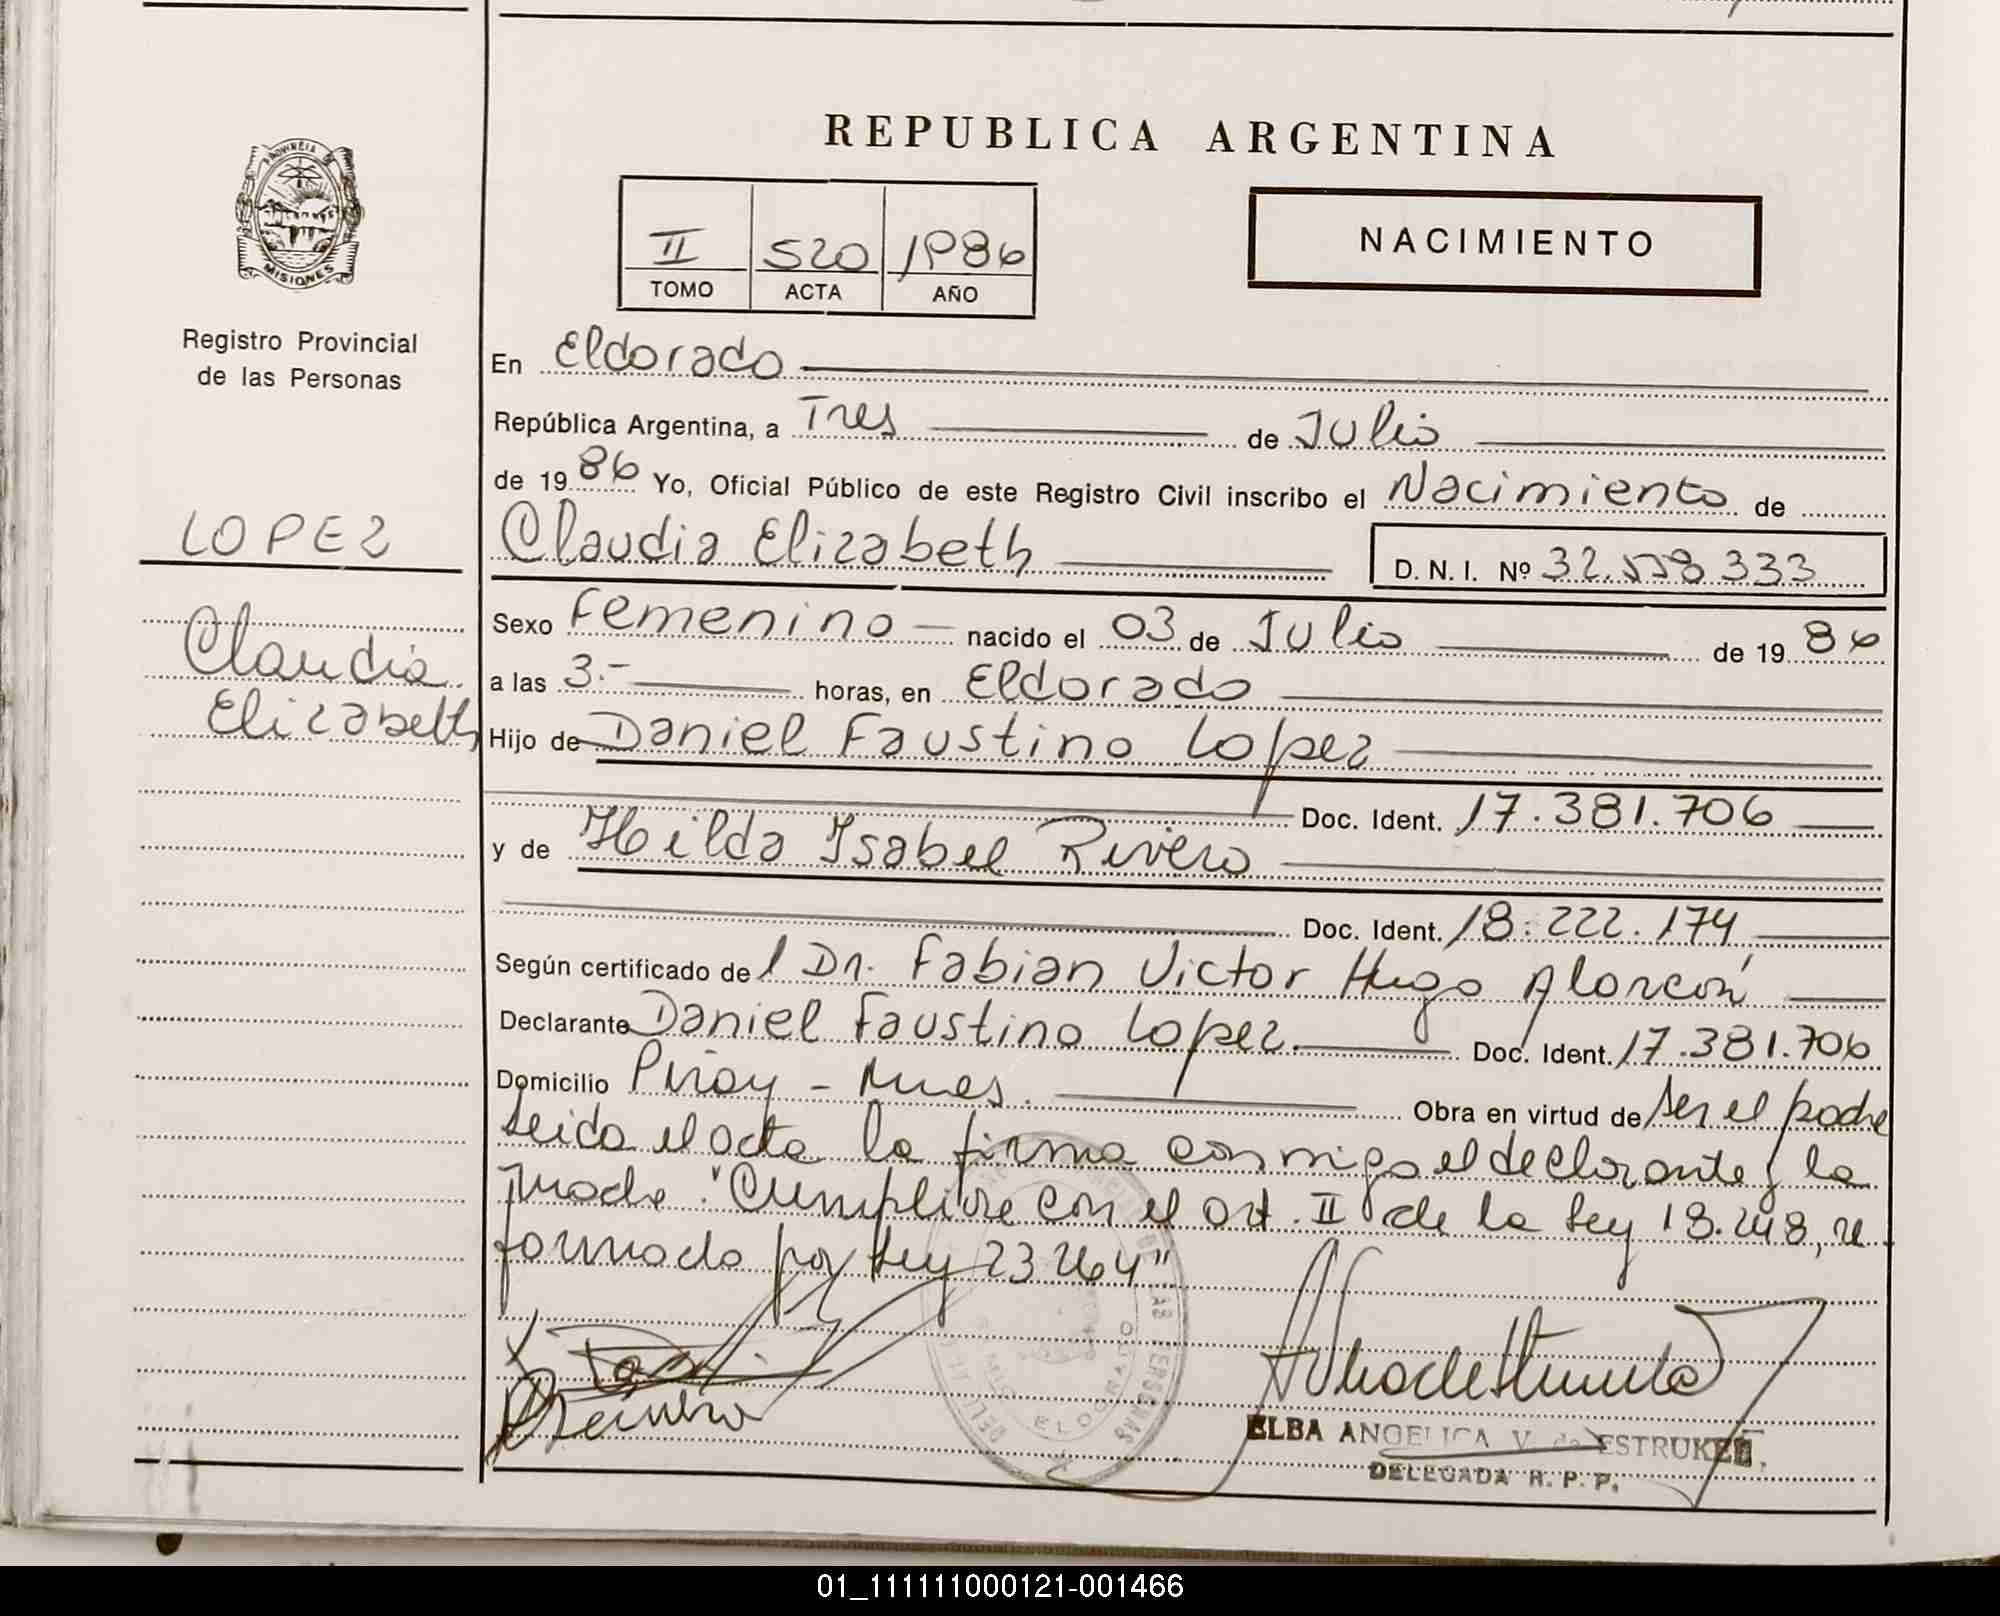 REPUBLICA ARGENTINA
PROVINCIA DE
MISIONES
Registro Provincial
de las Personas
II 520 1986
TOMO ACTA AÑO
NACIMIENTO
En Eldorado
República Argentina, a Tres de Julio
de 1986 Yo, Oficial Público de este Registro Civil inscribo el Nacimiento de
LOPEZ
Claudia Elizabeth D. N. I. Nº 32.558333
Claudia
Elizabeth
Sexo Femenino nacido el 03 de Julio de 1986
a las 3.- horas, en Eldorado
Hijo de Daniel Faustino Lopez
Doc. Ident. 17.381.706
y de Hilda Isabel Rivero
Doc. Ident. 18.222.174
Según certificado del Dr. Fabian Victor Hugo Alarcón
Declarante Daniel Faustino Lopez. Doc. Ident. 17.381.706
Domicilio Piray - Mnes. Obra en virtud de ser el padre
Leida el acta la firma conmigo el declarante y la
madre. "Cumplire con el art. II de la Ley 18.248, re
formado por Ley 23264"
ELDORADO
ELBA ANGELICA V. de ESTRUKEL
DELEGADA R. P. P.
01_111111000121-001466